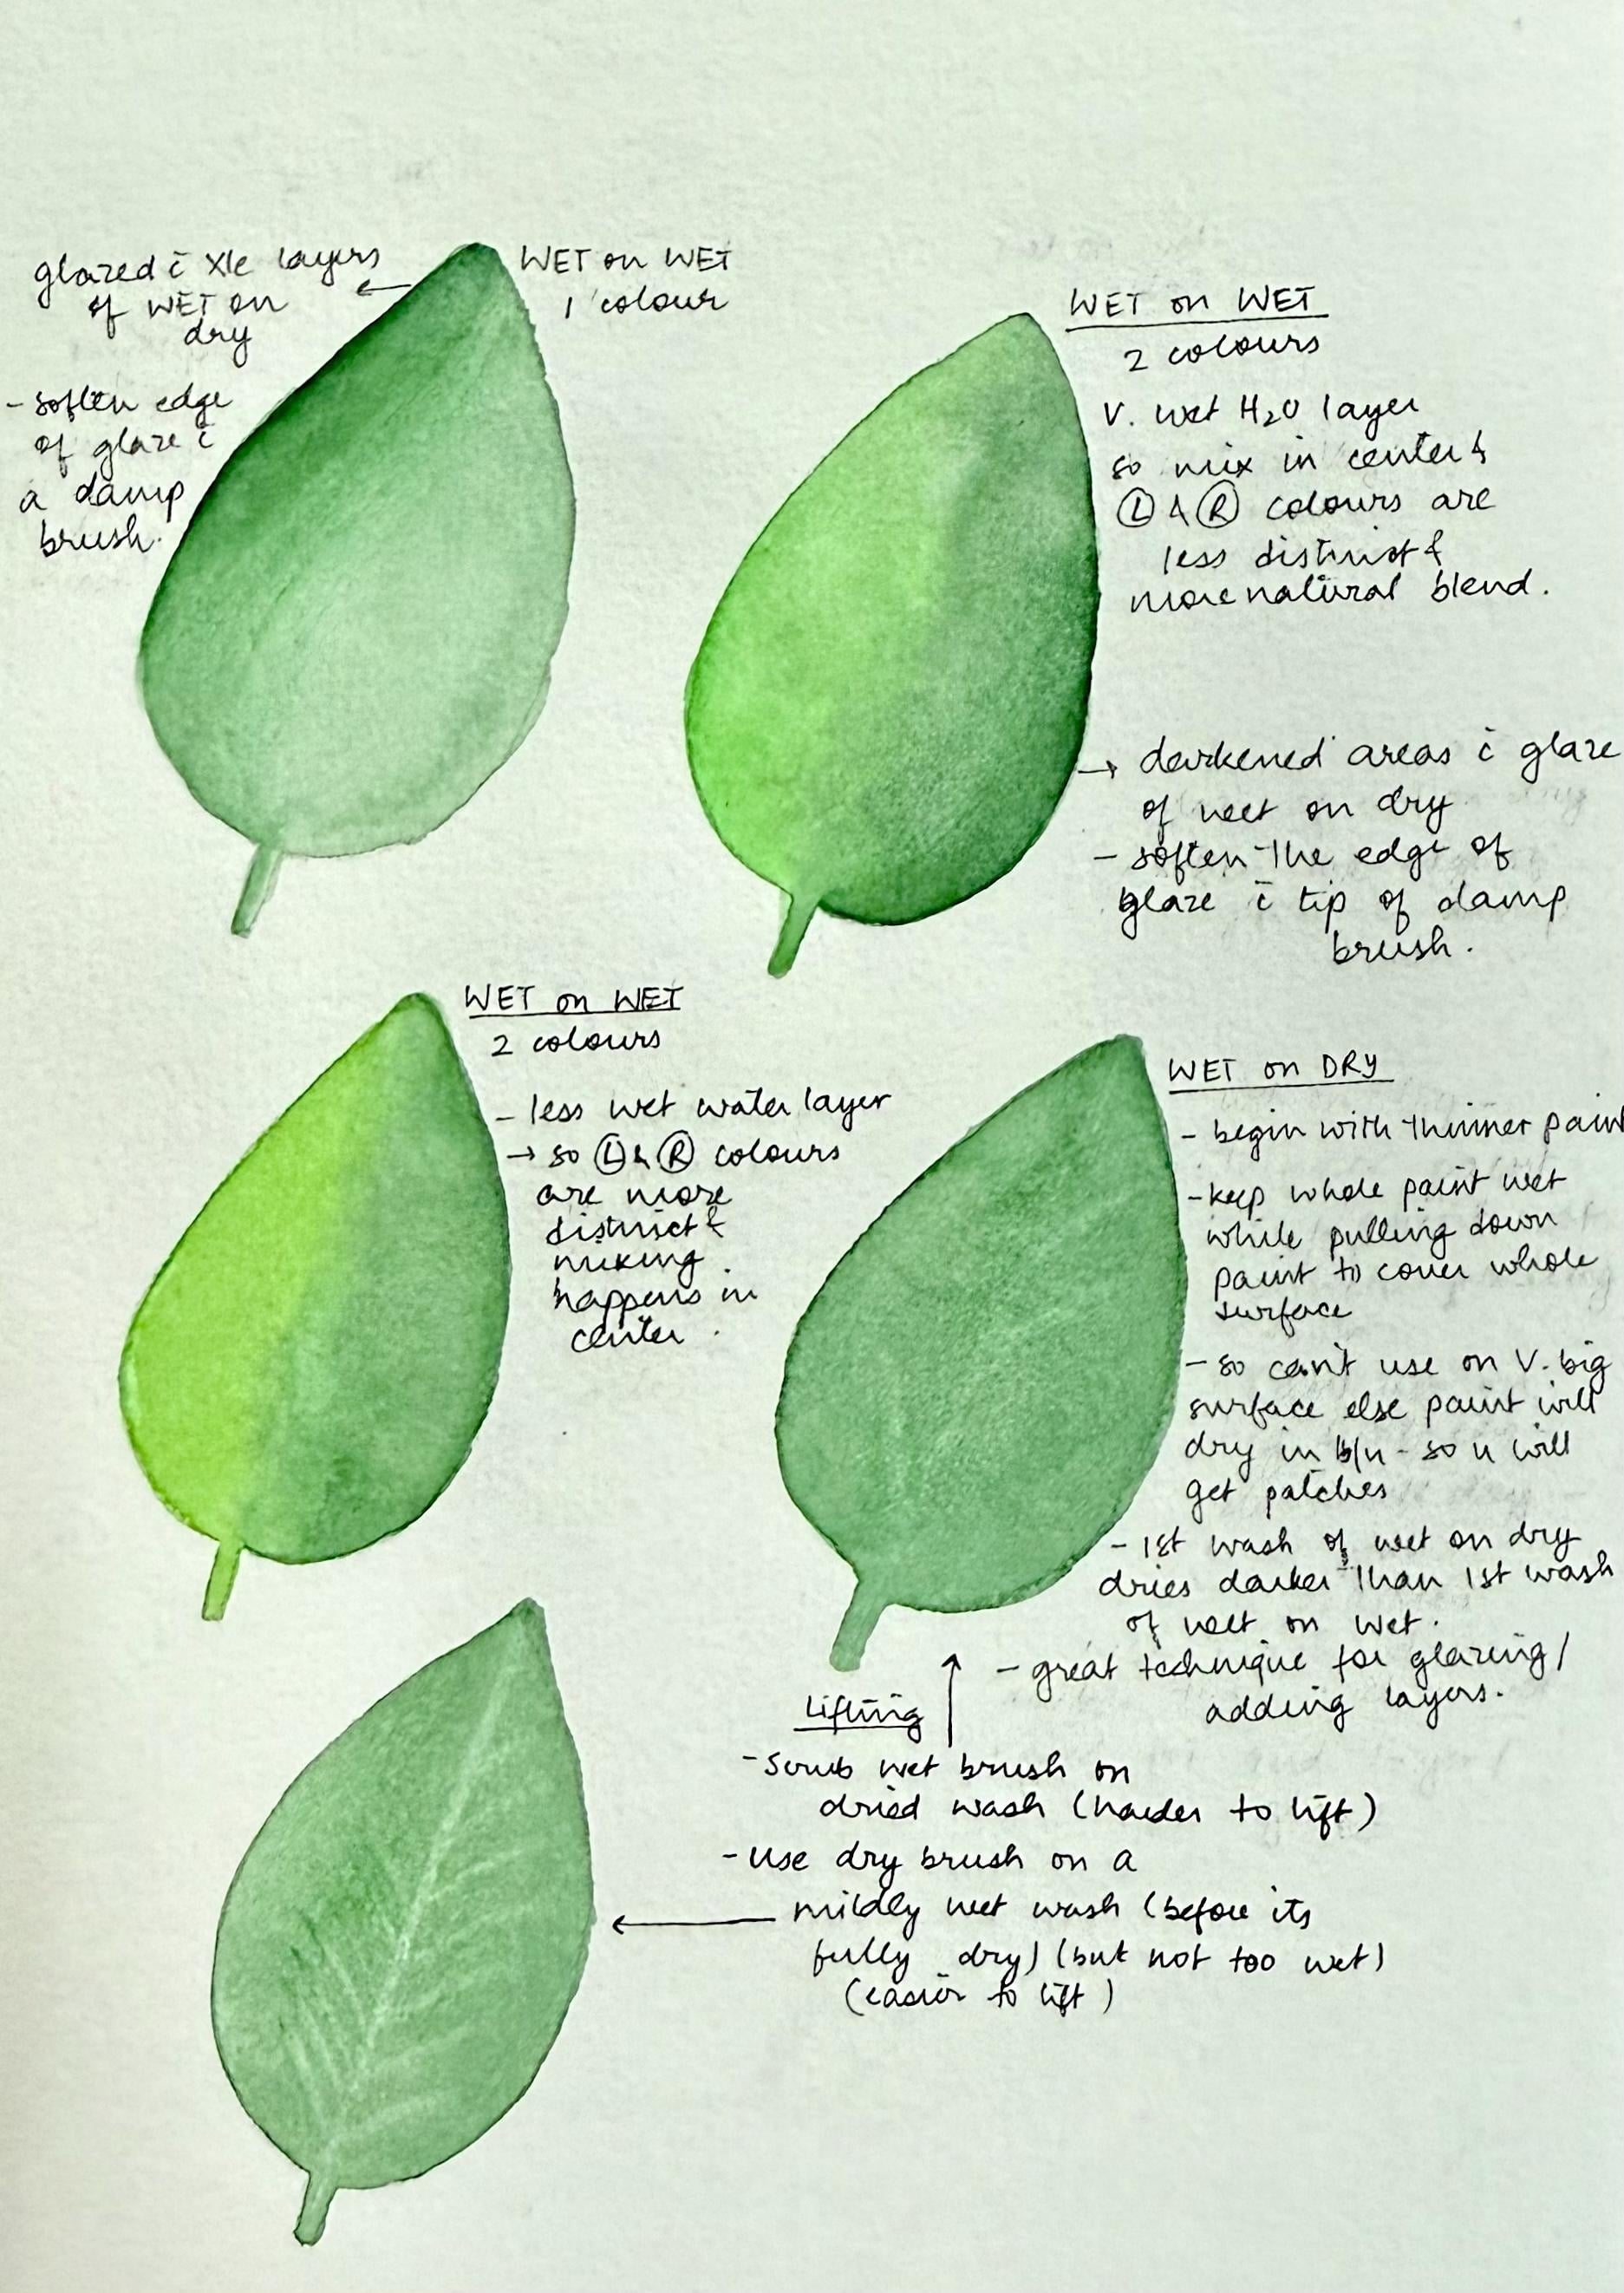 glazed c̄ Xle layers
of WET on
dry
- soften edge
of glaze c̄
a damp
brush.
WET on WET
1 colour
WET on WET
2 colours
V. wet H₂O layer
so mix in center &
Ⓛ & Ⓡ colours are
less distinct &
more natural blend.
→ darkened areas c̄ glaze
of wet on dry
- soften the edge of
glaze c̄ tip of damp
brush.
WET on WET
2 colours
- less wet water layer
→ so Ⓛ & Ⓡ colours
are more
distinct &
mixing
happens in
center.
WET on DRY
- begin with thinner pain
- keep whole paint wet
while pulling down
paint to cover whole
surface
- so can't use on V. big
surface else paint will
dry in b/n - so u will
get patches
- 1st wash of wet on dry
dries darker than 1st wash
of wet on wet.
- great technique for glazing/
adding layers.
Lifting
- Scrub wet brush on
dried wash (harder to lift)
- use dry brush on a
mildly wet wash (before its
fully dry) (but not too wet)
(easier to lift)